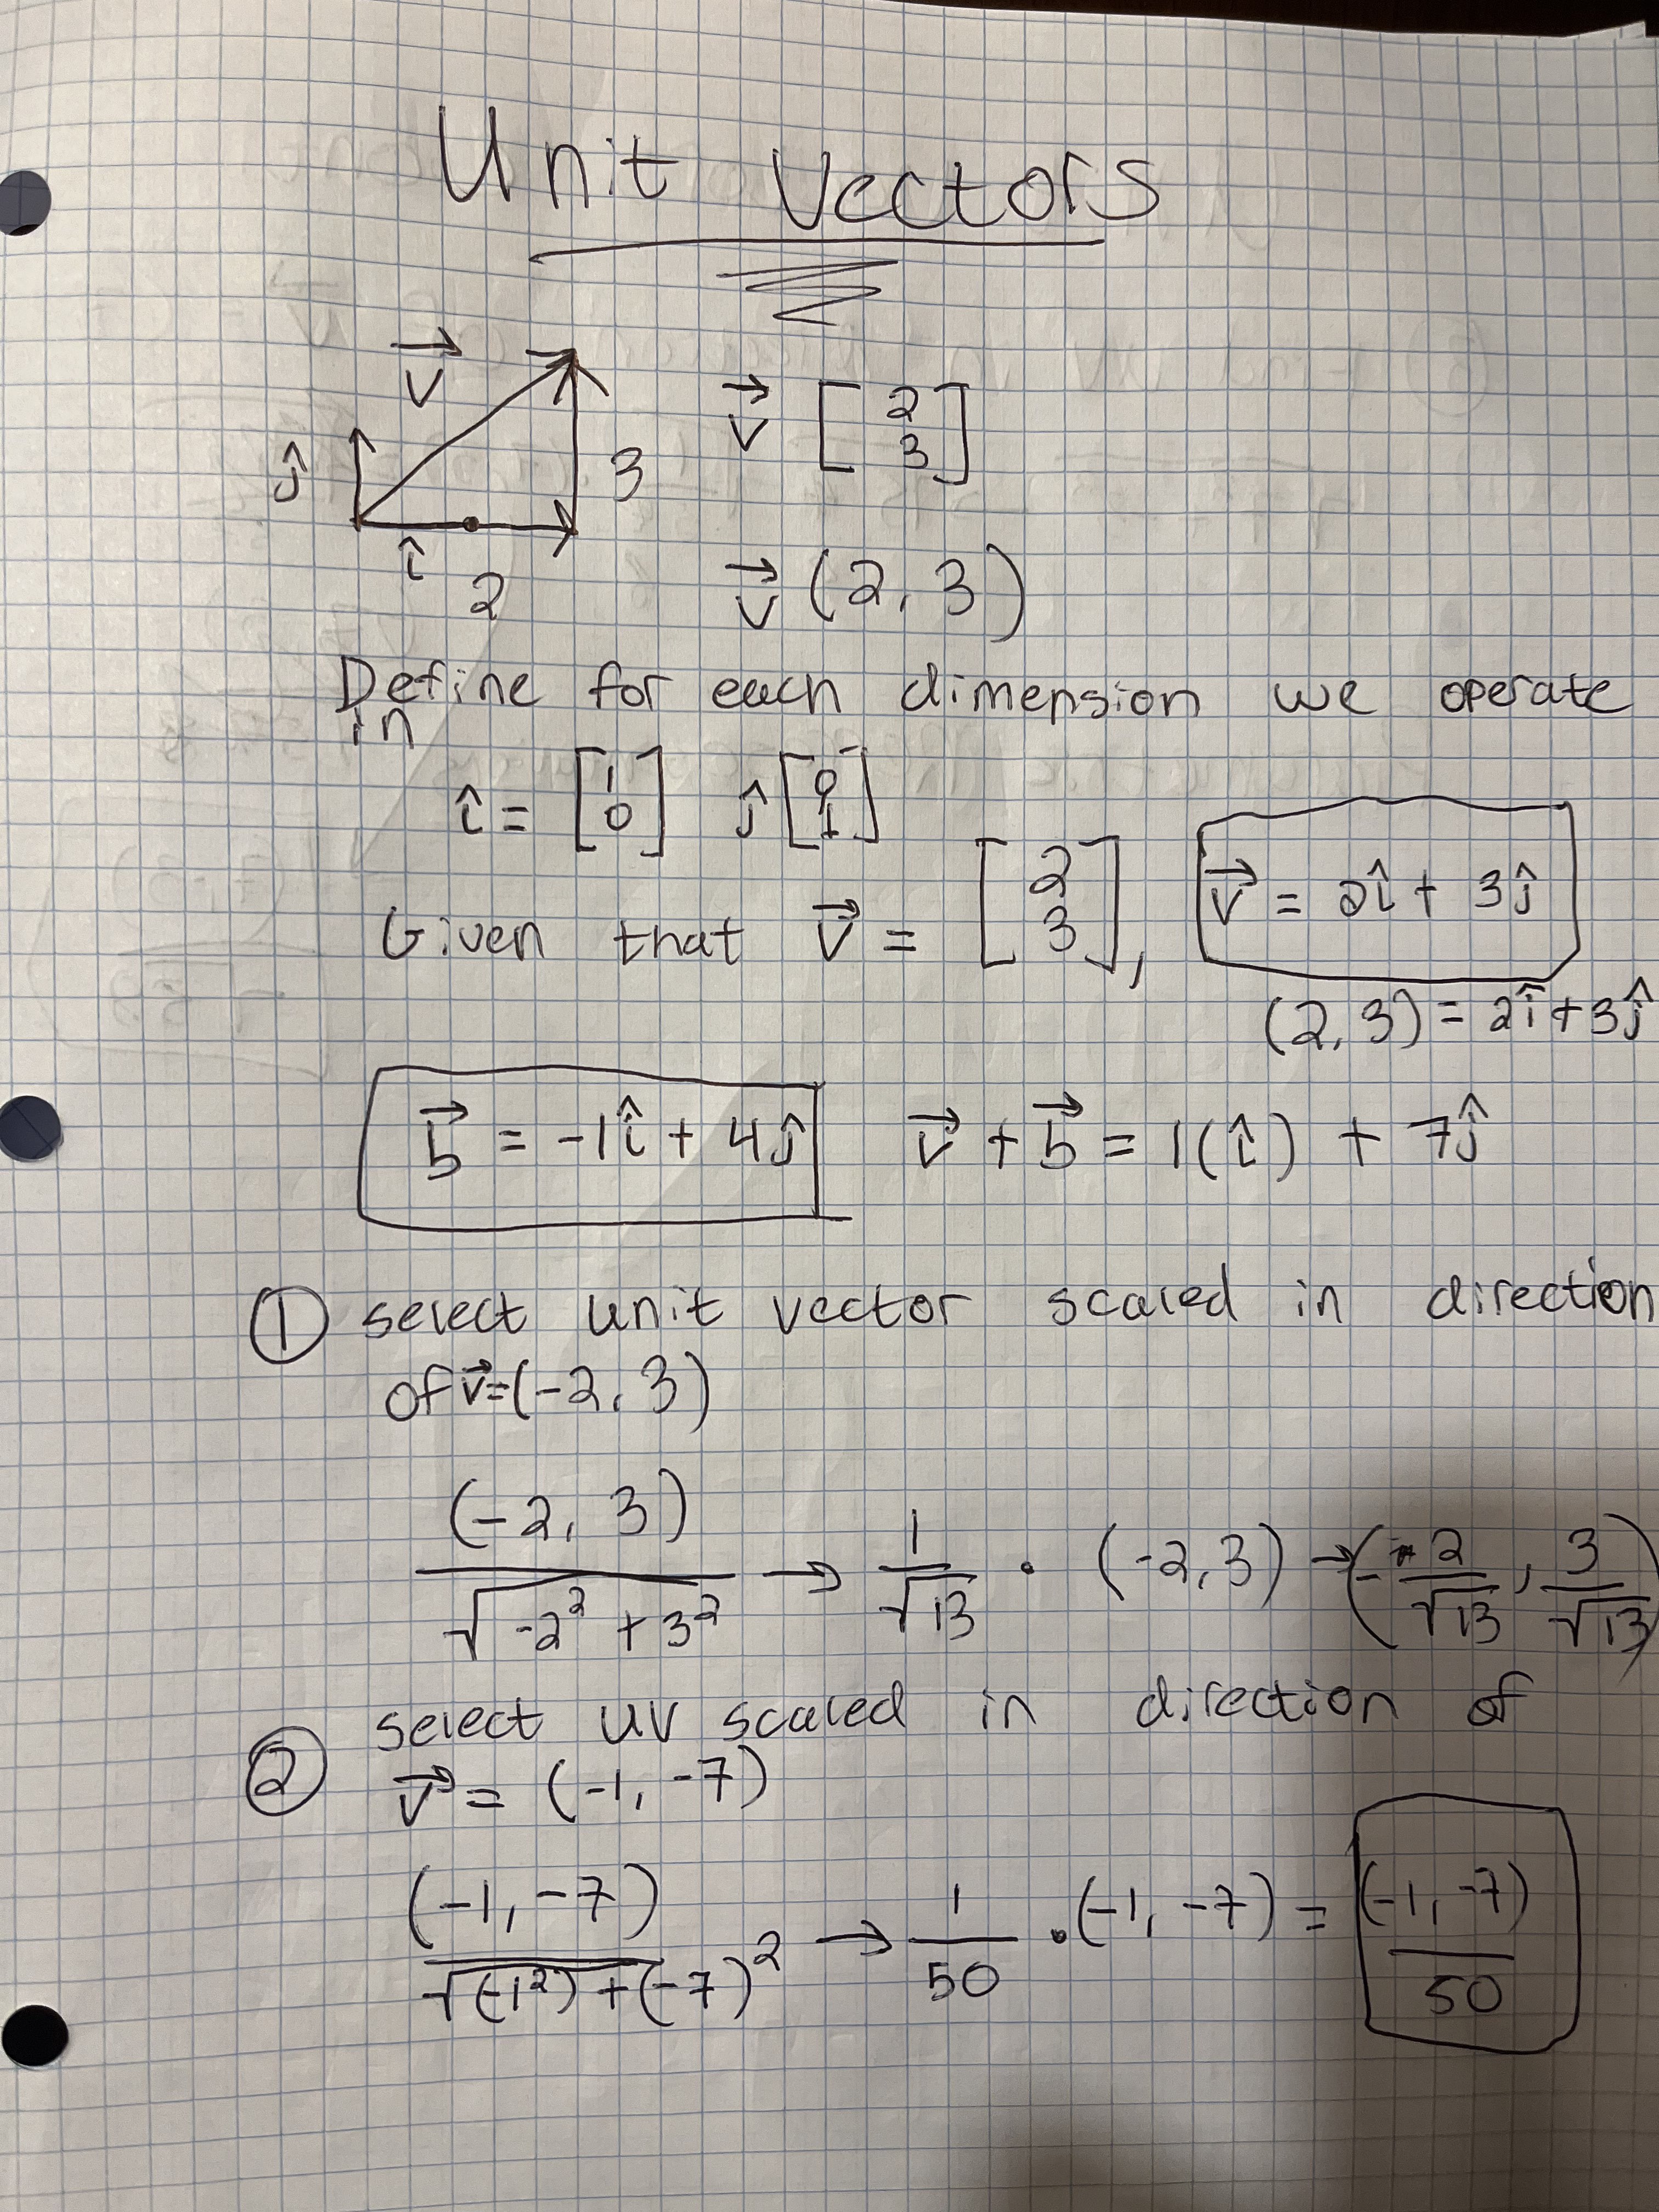 Unit Vectors
v⃗
ĵ
3
î
2
v⃗ [2
3]
v⃗ (2, 3)
Define for each dimension we operate
in
î = [1
0] ĵ [0
1]
Given that v⃗ = [2
3], v⃗ = 2î + 3ĵ
(2, 3) = 2î + 3ĵ
b⃗ = -1î + 4ĵ v⃗ + b⃗ = 1(î) + 7ĵ
① select unit vector scaled in direction
of v⃗=(-2, 3)
(-2, 3)/√-2² + 3² → 1/√13 · (-2, 3) → (-2/√13, 3/√13)
② select uv scaled in direction of
v⃗ = (-1, -7)
(-1, -7)/√(-1²) + (-7)² → 1/50 · (-1, -7) = (-1, -7)/50